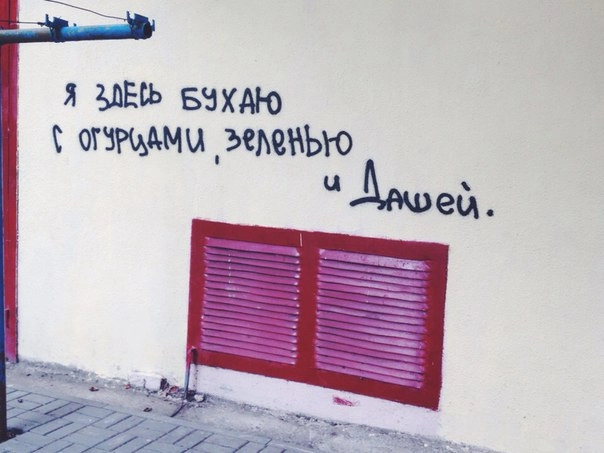 Я ЗДЕСЬ БУХАЮ
С ОГУРЦАМИ, ЗЕЛЕНЬЮ
И ДАШЕЙ.